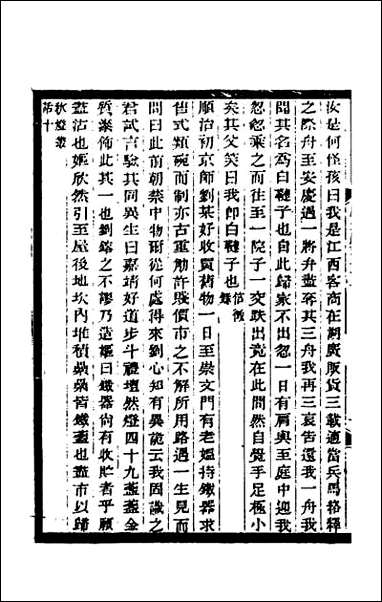 汝是何怪孩曰我是江西客商在湖廣販貨三載適當兵馬絡繹
之際舟至安慶遇一將弁盡奪其三舟我再三哀告還我一舟我
問其名爲白鞬子也自此歸家不出忽一日有肩輿至庭中迎我
忽忽乘之而往至一院子一交跌出竟在此間然自覺手足極小
矣其父笑曰我卽白鞬子也
順治初京師劉某好收買舊物一日至崇文門有老嫗持鐵器求
售式類碗而制亦古重觔許賤價市之不解所用路遇一生見而
問曰此前朝禁中物爾從何處得來劉心知有異詭云我固識之
君試言驗其同異生曰嘉靖好道步斗禮壇然燈四十九盞盞金
質藥飾此其一也劉鎔之不謬乃造嫗曰鐵器尚有收貯者乎願
盡沽也嫗欣然引至屋後地坎內堆積纍纍皆鐵盞也盡市以歸
秋燈叢
話十